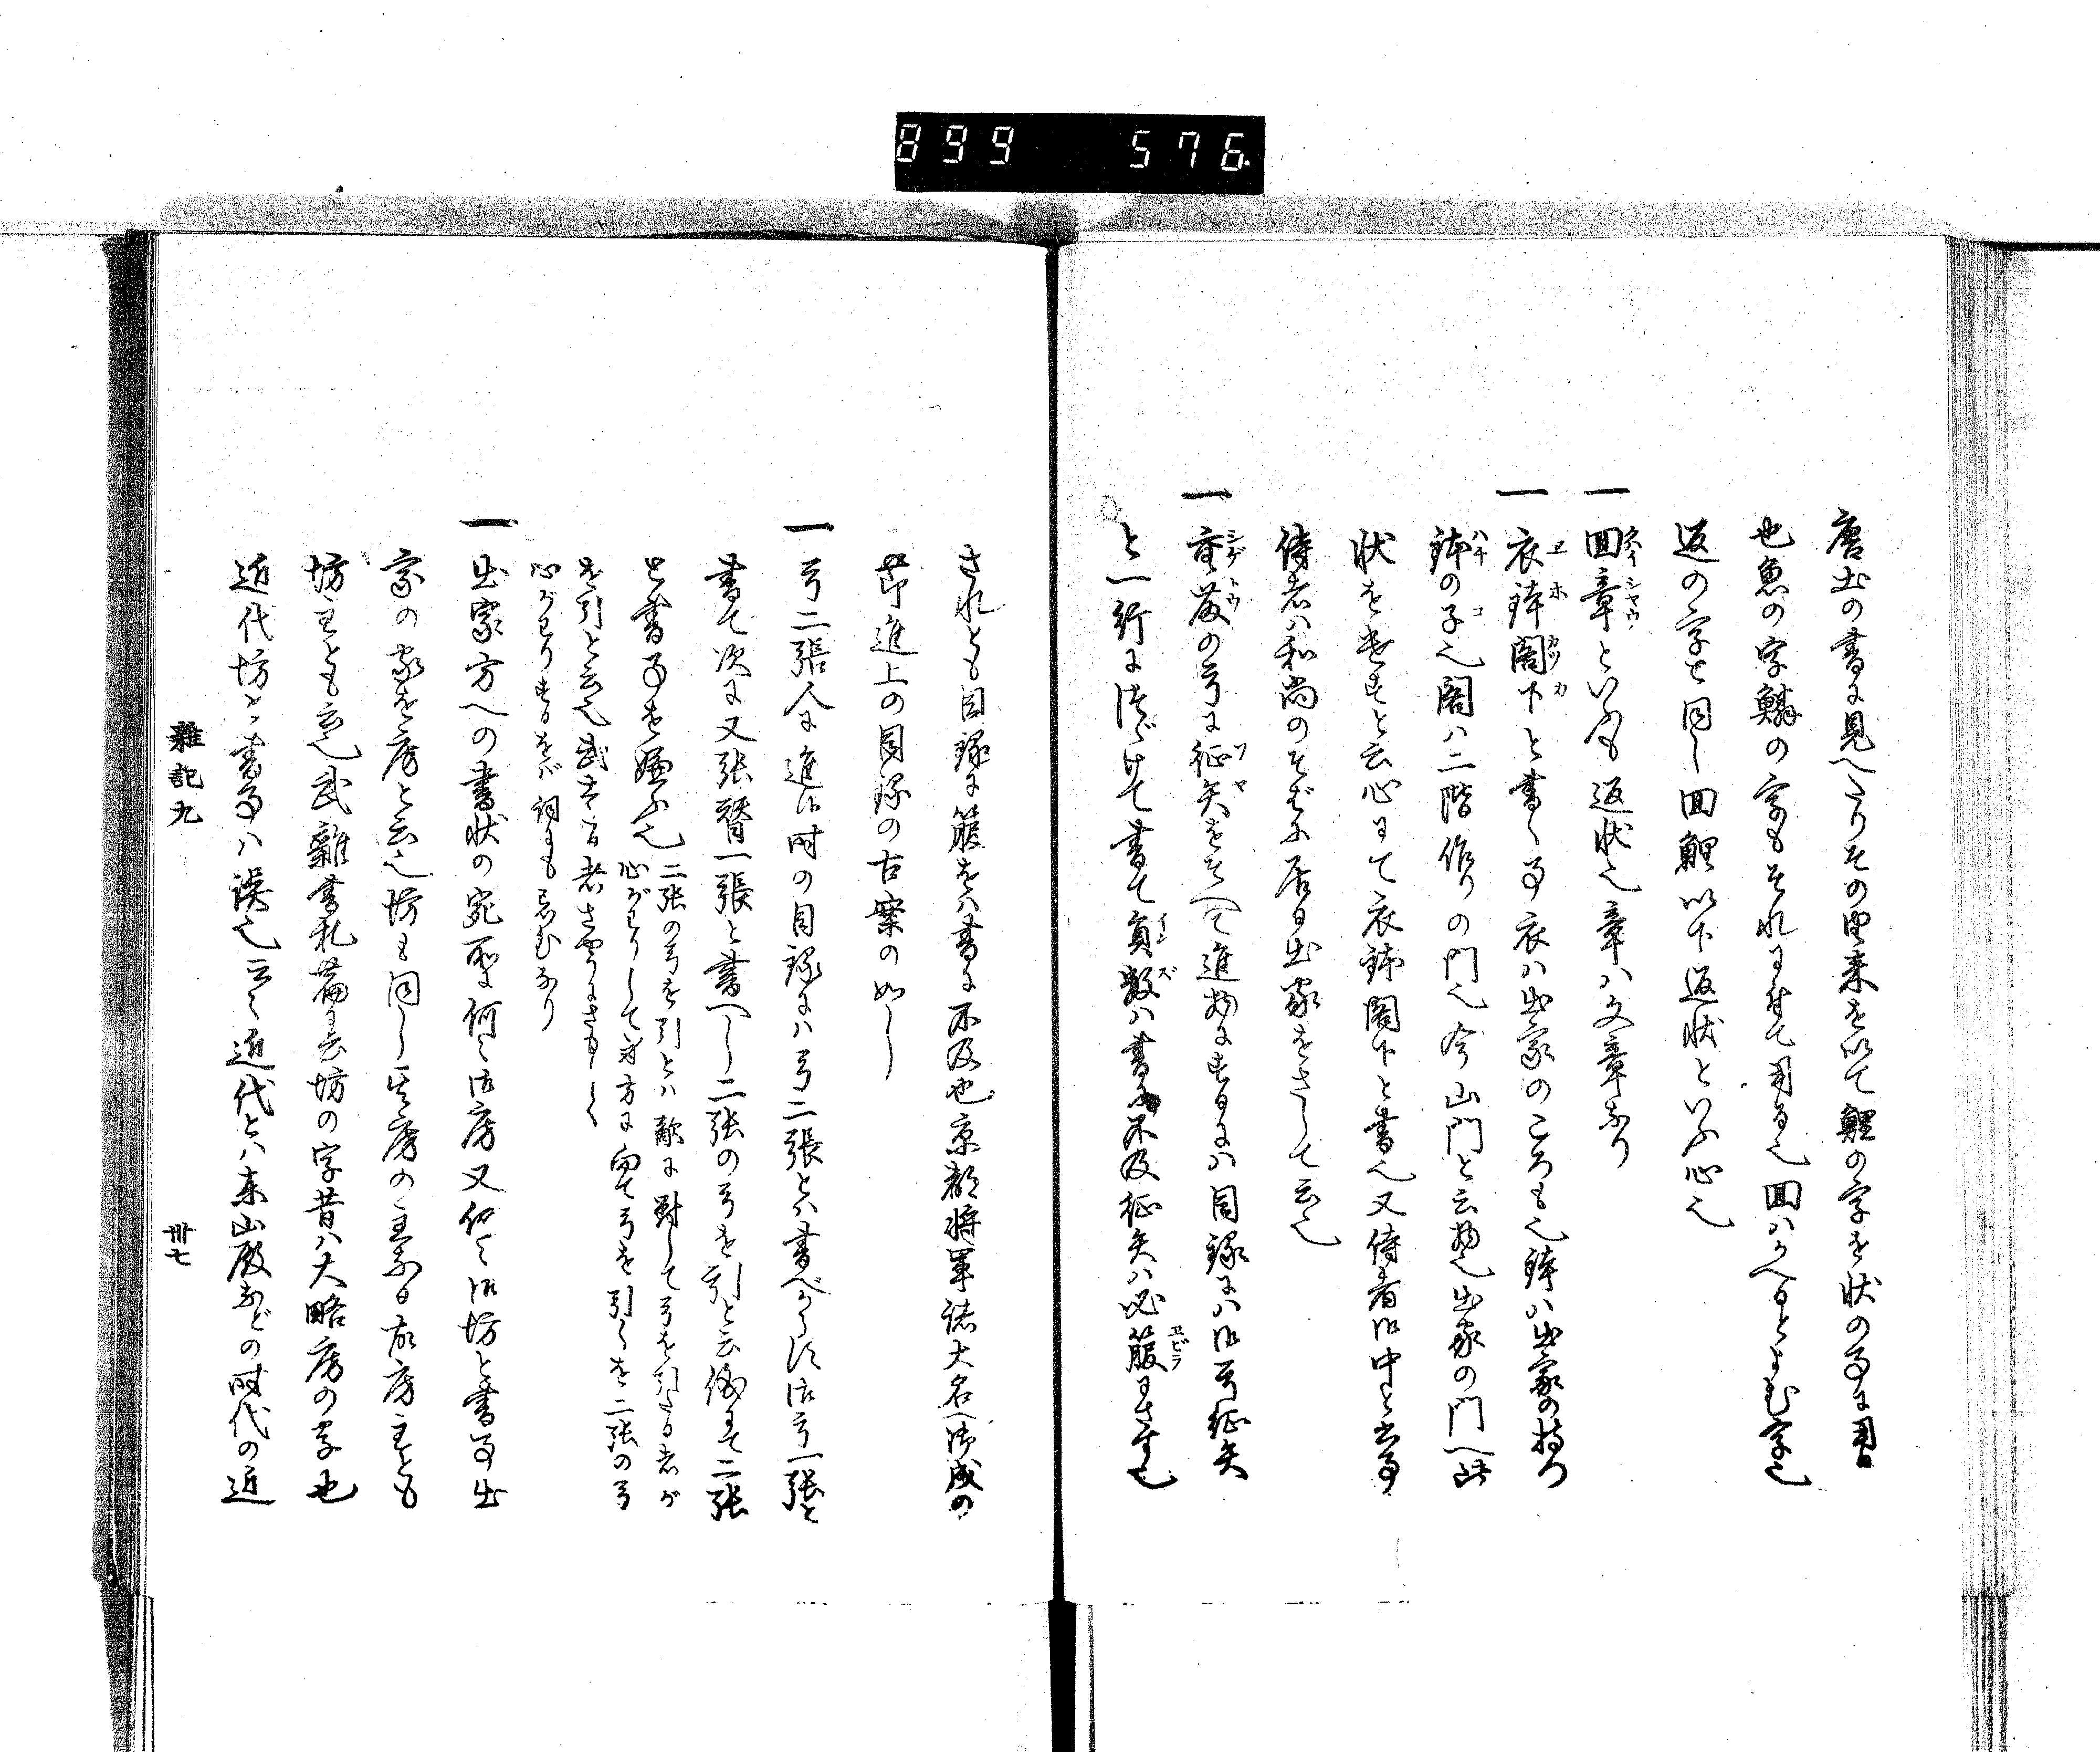 899 576
唐土の書に見へたりその由来を以て鯉の字を状の事に用る
也魚の字鱗の字もそれに付て用る也回ハかへるとよむ字也
返の字と同し回鯉以下返状といふ心也
一回章といふも返状也章ハ文章なり
クイシヤウ
一衣鉢閣下と書く事衣ハ出家のころも也鉢ハ出家の持つ
ヱホカツカ
鉢の子也閣ハ二階作りの門也今山門と云物也出家の門へ此
ハチ コ
状を进すと云心にて衣鉢閣下と書也又侍者御中と云事
侍者ハ和尚のそばに居る出家をさして云也
一重藤の弓に征矢をそへて進物にするにハ目録にハ御弓征矢
シゲトウ ソヤ
と一行につゞけて書て員数ハ書に不及征矢ハ必箙にさす也
インズ ヱビラ
されとも目録に箙をハ書に不及也京都将軍諸大名へ御成の
節進上の目録の古案の如し
一弓二張人に進候時の目録にハ弓二張とハ書べからす御弓一張と
書て次に又張替一張と書へし二張の弓を引と云儀にて二張
と書事を嫌ふ也
二張の弓を引とハ敵に対して弓を引たる者が
心がわりして身方に向て弓を引くを二張の弓
を引と云也武士たる者さやうにさもしく
心がわりするをバ詞にも忌むなり
一出家方への書状の宛所に何々御房又何々御坊と書事出
家の家を房と云也坊も同し其房の主なる故房主とも
坊主とも云也武雑書札篇に云坊の字昔ハ大略房の字也
近代坊と書事ハ誤也云々近代とハ東山殿などの時代の近
雑記九
卅七